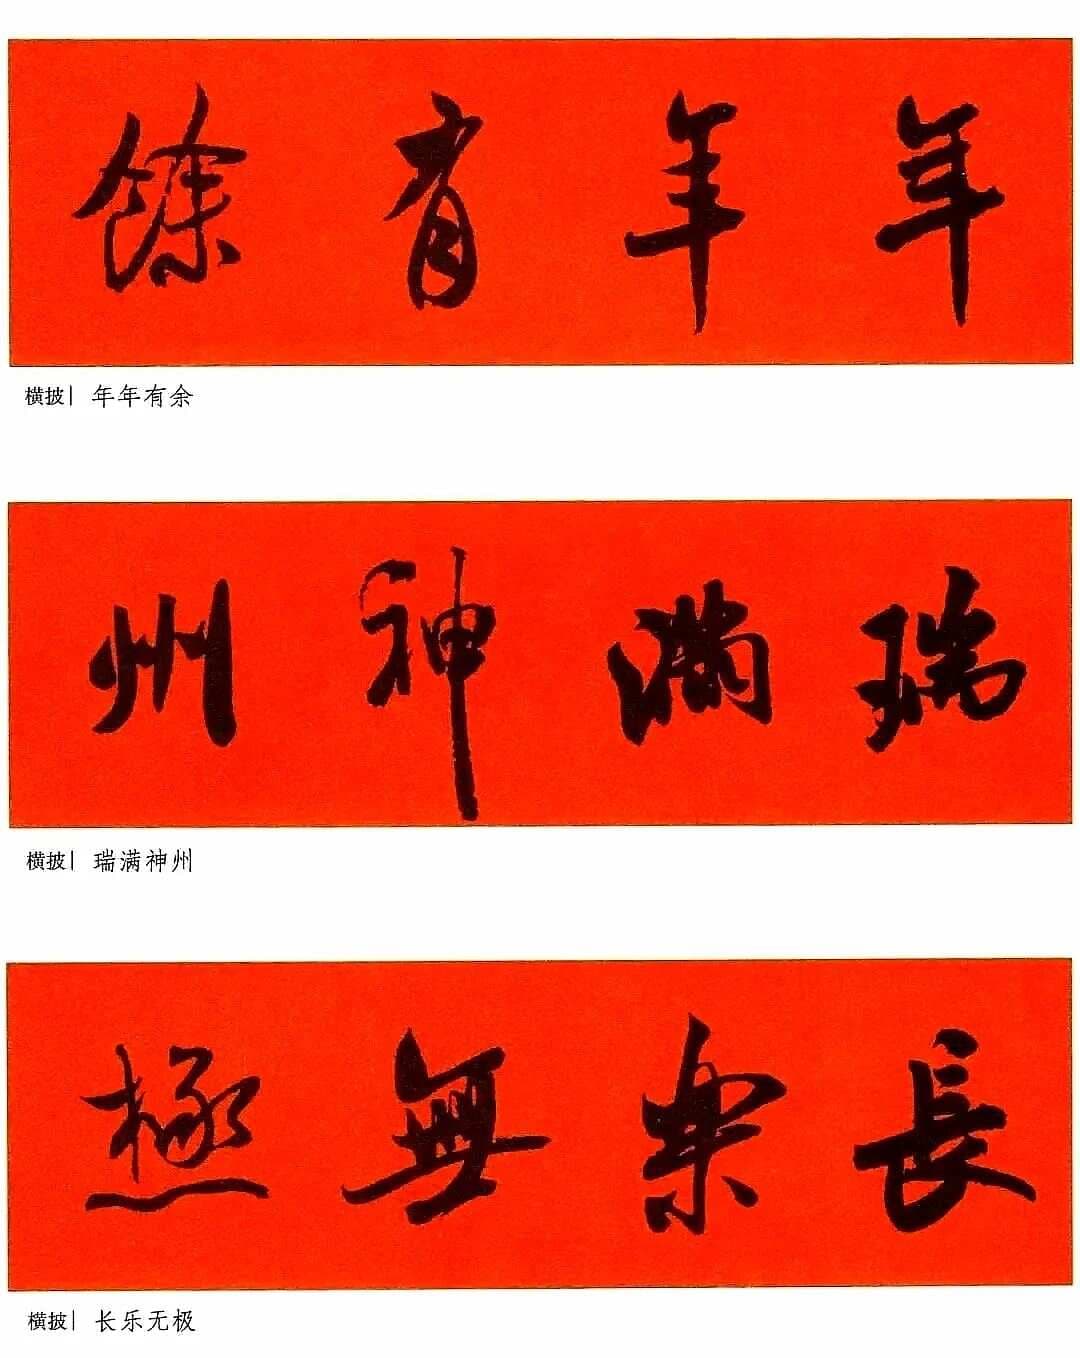 年年有餘
横披| 年年有余
瑞滿神州
横披| 瑞满神州
長樂無極
横披| 长乐无极